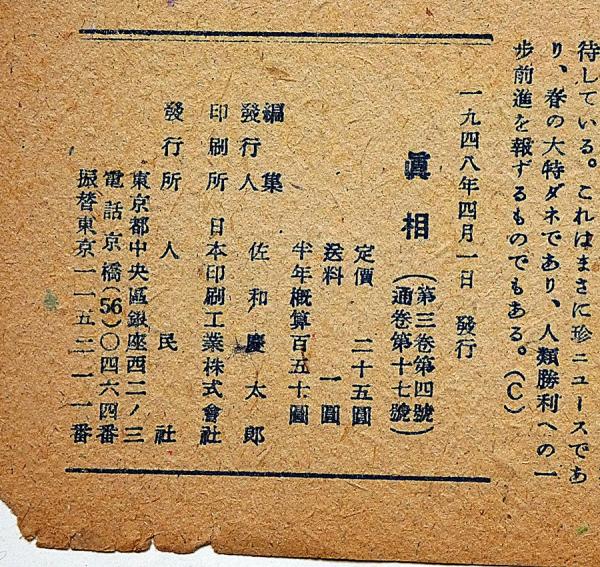 待している。これはまさに珍ニュースであ
り、春の大特ダネであり、人類勝利への一
歩前進を報ずるものでもある。(C)
一九四八年四月一日　發行
眞相
(第三卷第四號)
(通卷第十七號)
定價　二十五圓
送料　一圓
半年概算百五十圓
編集
發行人　佐和慶太郎
印刷所　日本印刷工業株式會社
發行所　人民社
東京都中央區銀座西二ノ三
電話京橋(56)〇四六四番
振替東京一一五二一一番